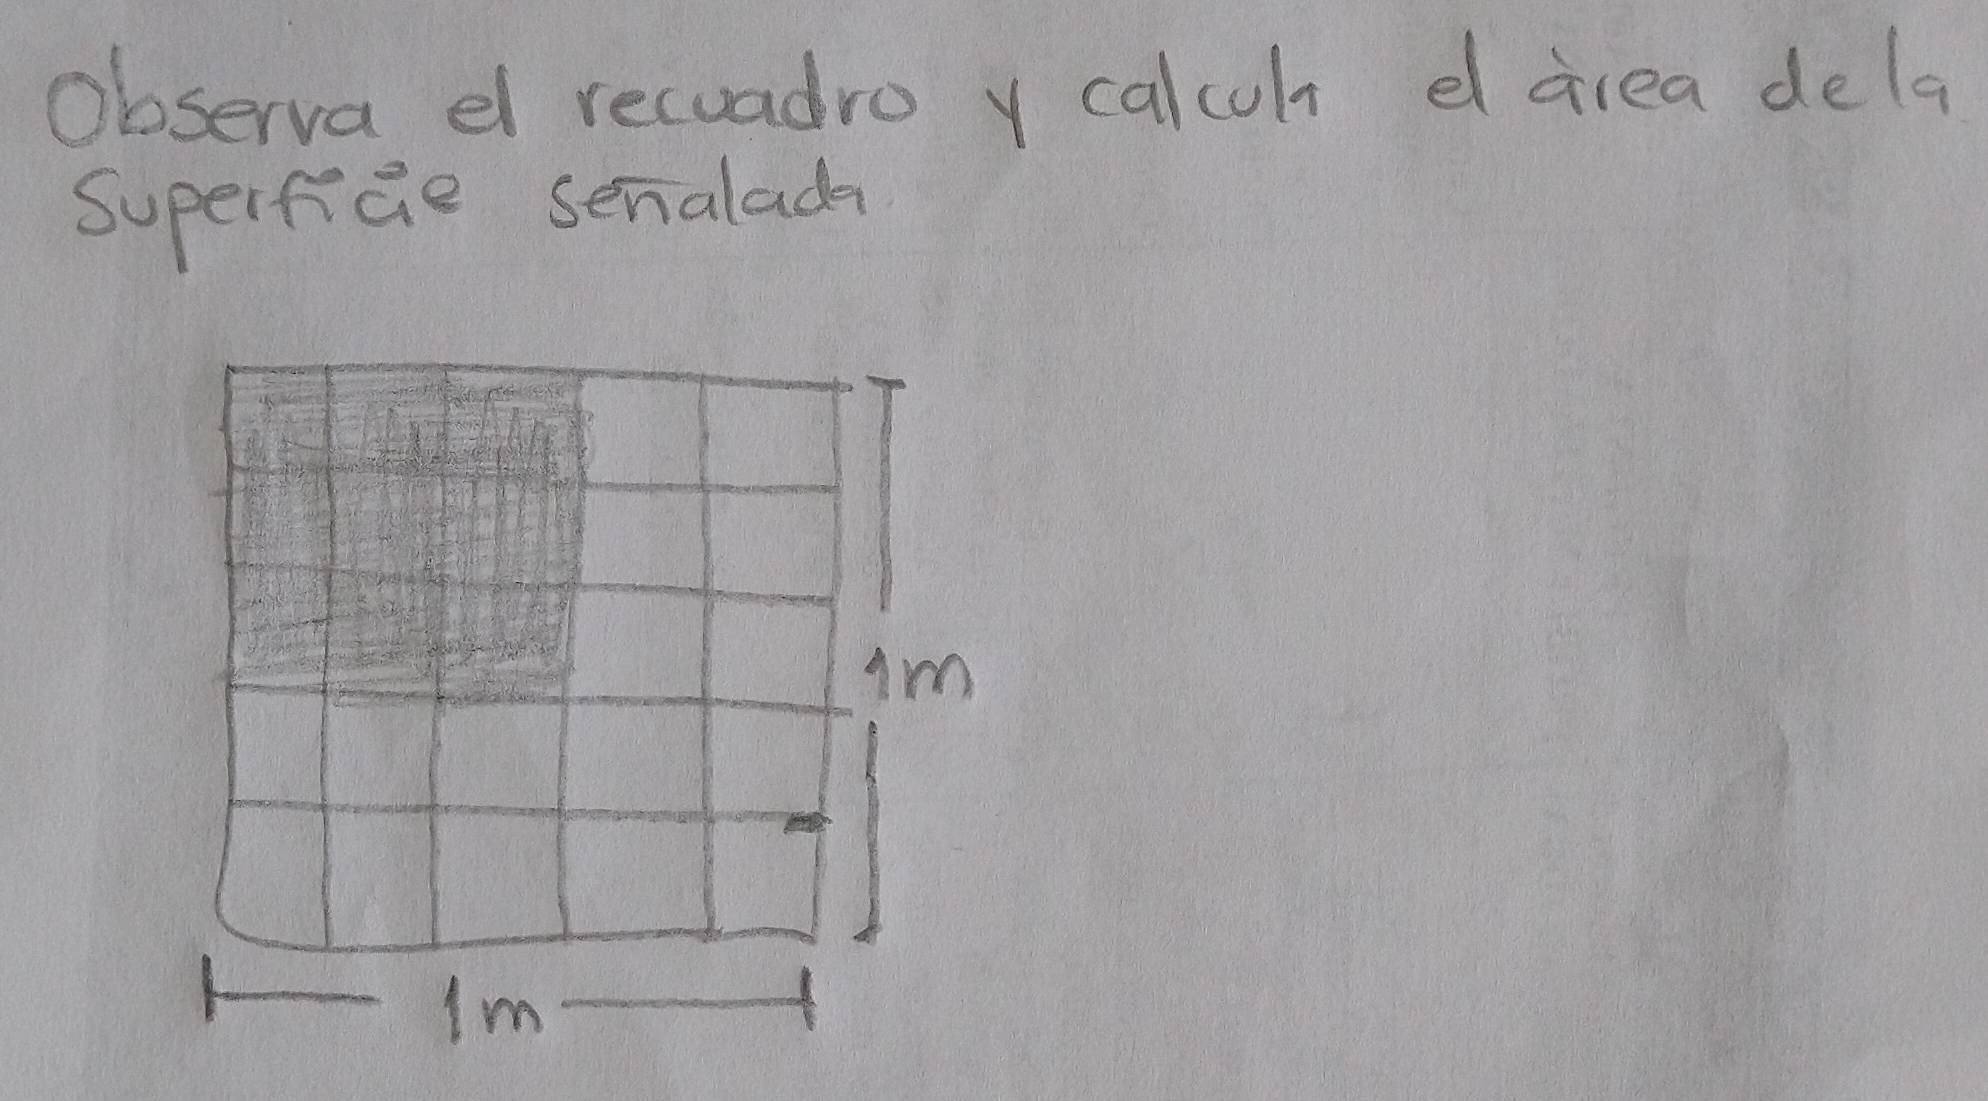 Observa el recuadro y calcula el àrea de la
Superficie señalada.
1m
1m